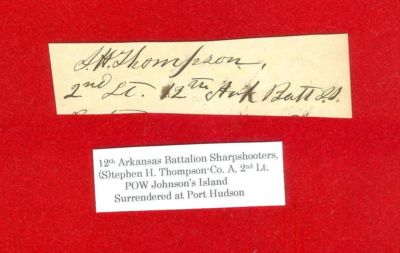 S.H. Thompson,
2nd Lt. 12th Ark Batt S.S.
12th Arkansas Battalion Sharpshooters,
(S)tephen H. Thompson-Co. A, 2nd Lt.
POW Johnson's Island
Surrendered at Port Hudson